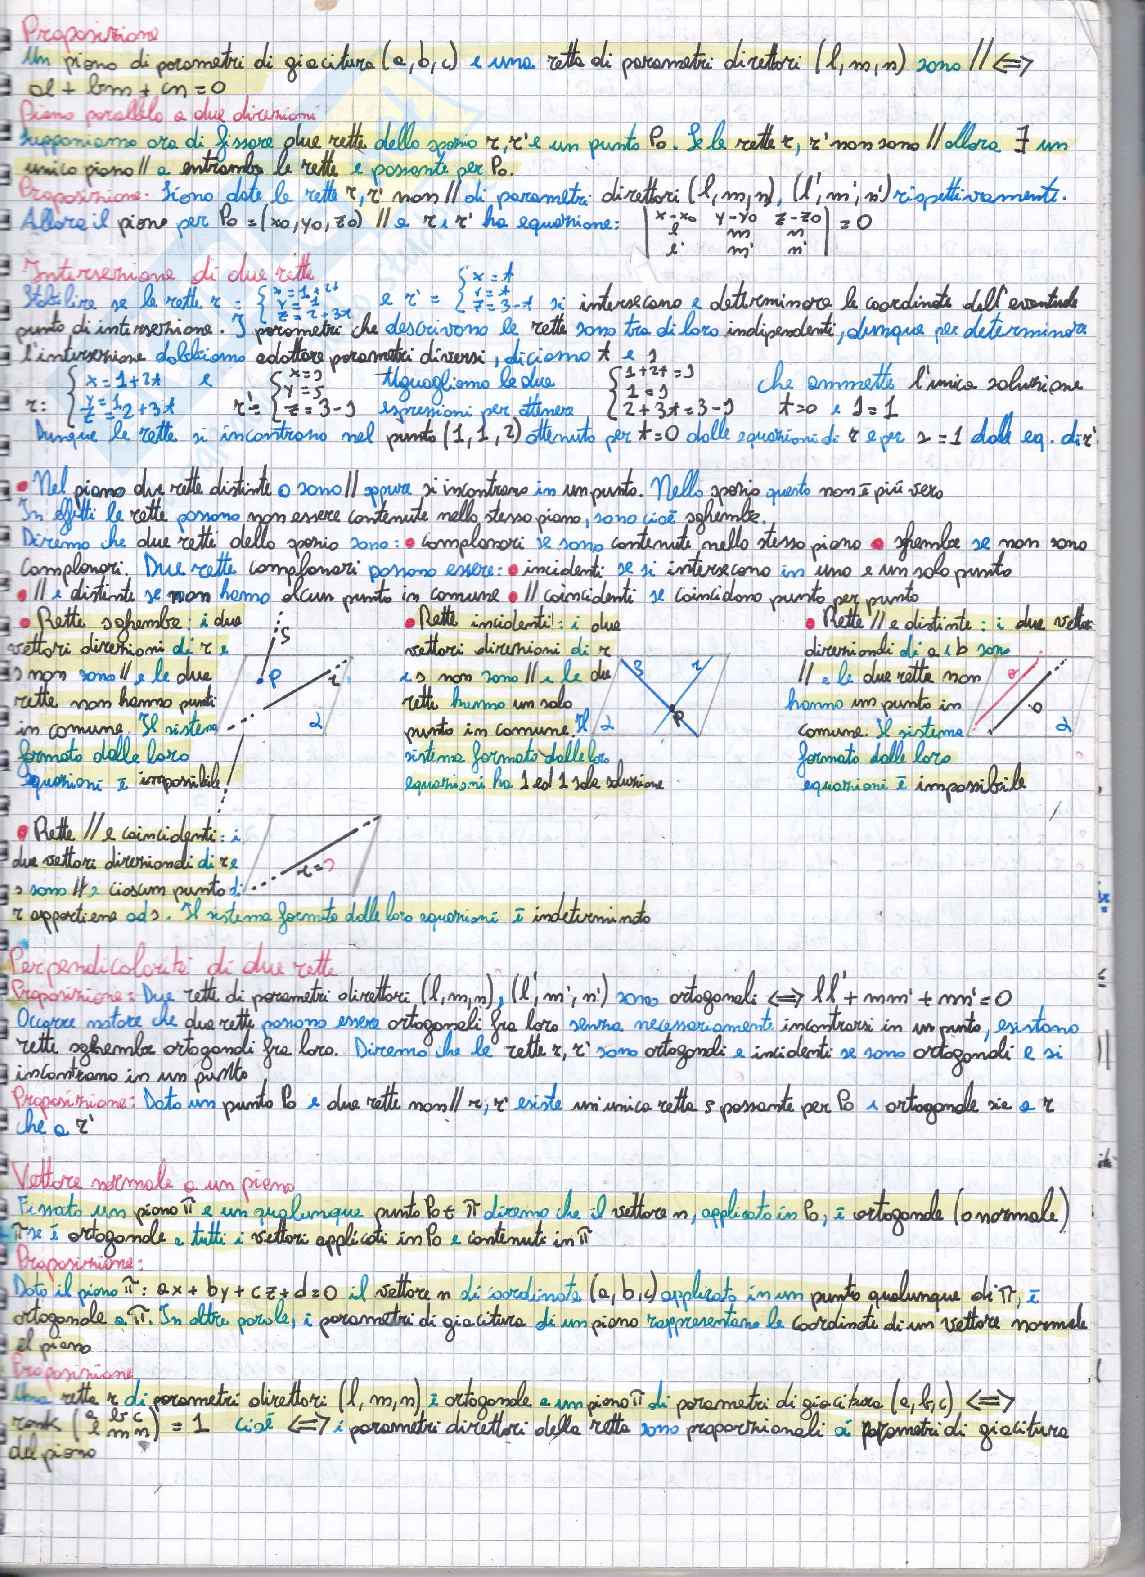 Proposizione
Un piano di parametri di giacitura (a, b, c) e una retta di parametri direttori (l, m, n) sono // ⟺
al + bm + cn = 0
Piano parallelo a due direzioni
Supponiamo ora di fissare due rette dello spazio r, r' e un punto P0. Se le rette r, r' non sono // allora ∃ un
unico piano // a entrambe le rette e passante per P0.
Proposizione: Siano date le rette r, r' non // di parametri direttori (l, m, n), (l', m', n') rispettivamente.
Allora il piano per P0 = (x0, y0, z0) // a r e r' ha equazione: | x-x0 y-y0 z-z0 | = 0
l m n
l' m' n'
Intersezione di due rette
Stabilire se le rette r = { x = 1+2t y = 1 z = 2+3t e r' = { x = t y = t z = 3-t si intersecano e determinare le coordinate dell'eventuale
punto di intersezione. I parametri che descrivono le rette sono tra di loro indipendenti, dunque per determinare
l'intersezione dobbiamo adottare parametri diversi, diciamo t e s
r: { x = 1+2t y = 1 z = 2+3t e r' = { x = s y = s z = 3-s Uguagliamo le due espressioni per ottenere { 1+2t = s 1 = s 2+3t = 3-s che ammette l'unica soluzione t=0 e s=1
Dunque le rette si incontrano nel punto (1, 1, 2) ottenuto per t=0 dalle equazioni di r e per s=1 dalle eq. di r'
• Nel piano due rette distinte o sono // oppure si incontrano in un punto. Nello spazio questo non è più vero
In effetti le rette possono non essere contenute nello stesso piano, sono cioè sghembe.
Diremo che due rette dello spazio sono: • complanari se sono contenute nello stesso piano • sghembe se non sono
complanari. Due rette complanari possono essere: • incidenti se si intersecano in uno e un solo punto
• // e distinte se non hanno alcun punto in comune • // coincidenti se coincidono punto per punto
• Rette sghembe: i due
vettori direzioni di r e
s non sono // e le due
rette non hanno punti
in comune. Il sistema
formato dalle loro
equazioni è impossibile
s
P
r
α
• Rette incidenti: i due
vettori direzioni di r
e s non sono // e le due
rette hanno un solo
punto in comune. Il
sistema formato dalle loro
equazioni ha 1 ed 1 sola soluzione
s
r
P
α
• Rette // e distinte: i due vettori
direziondi di a e b sono
// e le due rette non
hanno un punto in
comune. Il sistema
formato dalle loro
equazioni è impossibile
α
• Rette // e coincidenti: i
due vettori direziondi di r e
s sono // e ciascun punto di
r appartiene ad s. Il sistema formato dalle loro equazioni è indeterminato
r=s
Perpendicolarità di due rette
Proposizione: Due rette di parametri direttori (l, m, n), (l', m', n') sono ortogonali ⟺ ll' + mm' + nn' = 0
Occorre notare che due rette possono essere ortogonali fra loro senza necessariamente incontrarsi in un punto, esistono
rette sghembe ortogonali fra loro. Diremo che le rette r, r' sono ortogonali e incidenti se sono ortogonali e si
incontrano in un punto
Proposizione: Dato un punto P0 e due rette non // r, r' esiste un'unica retta s passante per P0 e ortogonale sia a r
che a r'
Vettore normale a un piano
Fissato un piano π e un qualunque punto P0 ∈ π diremo che il vettore n, applicato in P0, è ortogonale (o normale)
π se è ortogonale a tutti i vettori applicati in P0 e contenuti in π
Proposizione:
Dato il piano π: ax + by + cz + d = 0 il vettore n di coordinate (a, b, c) applicato in un punto qualunque di π, è
ortogonale a π. In altre parole, i parametri di giacitura di un piano rappresentano le coordinate di un vettore normale
al piano
Proposizione
Una retta r di parametri direttori (l, m, n) è ortogonale a un piano π di parametri di giacitura (a, b, c) ⟺
rank (a b c l m n) = 1 cioè ⟺ i parametri direttori della retta sono proporzionali ai parametri di giacitura
del piano